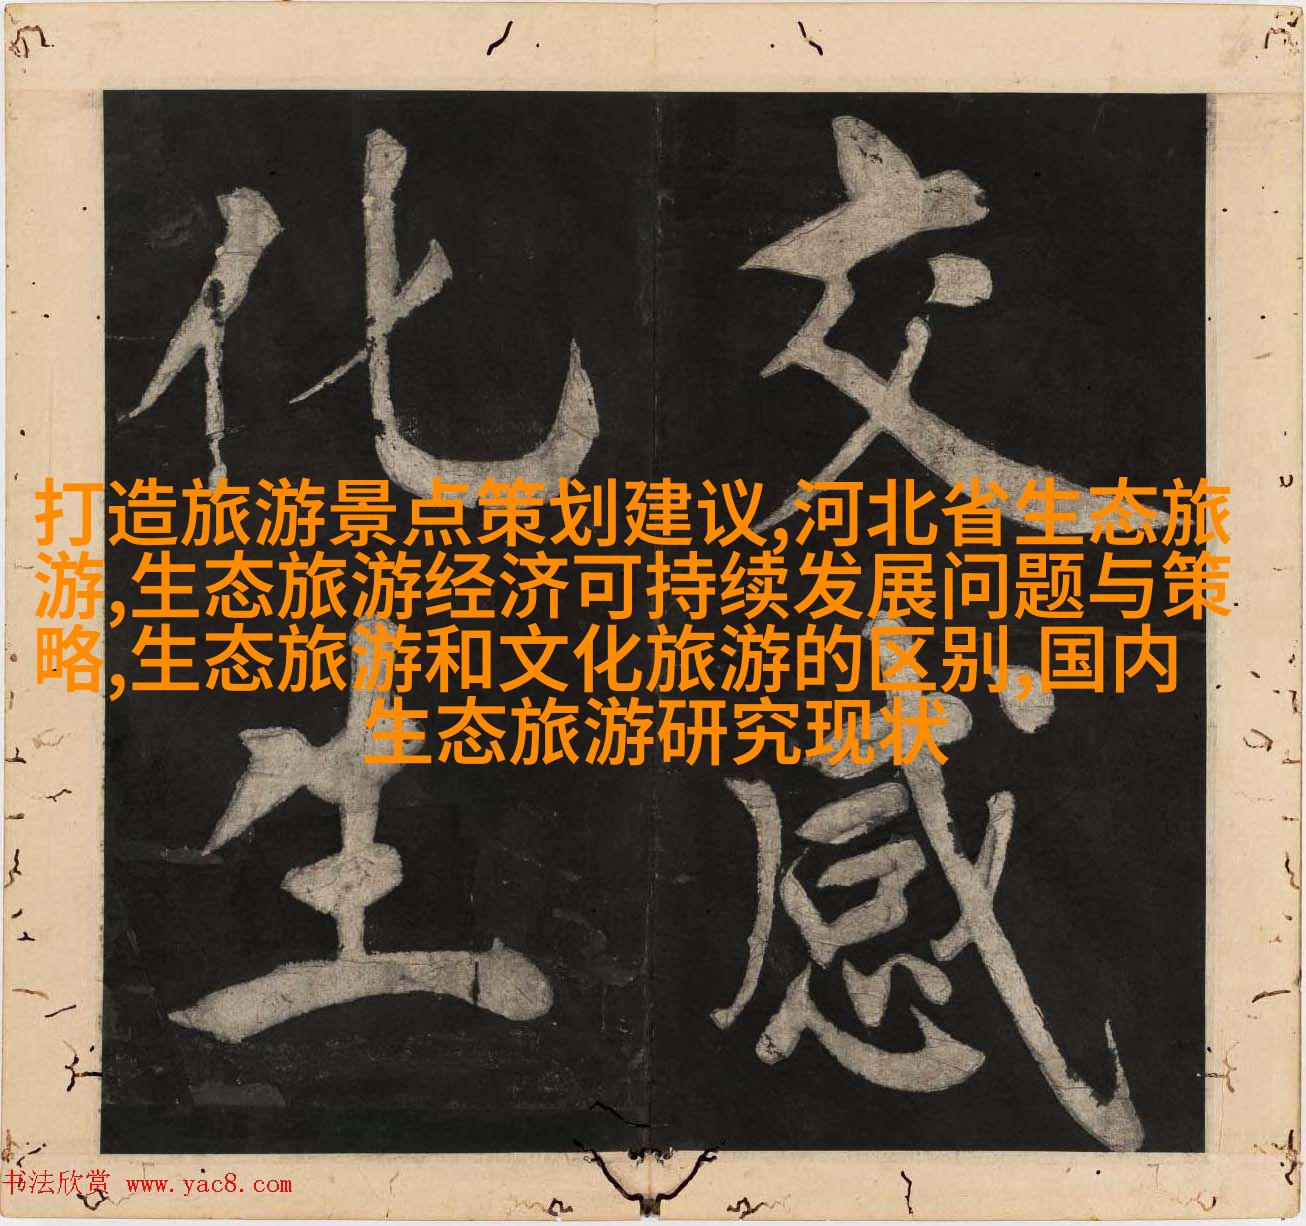 交感
化生
打造旅游景点策划建议,河北省生态旅
游,生态旅游经济可持续发展问题与策
略,生态旅游和文化旅游的区别,国内
生态旅游研究现状
书法欣赏 www.yac8.com